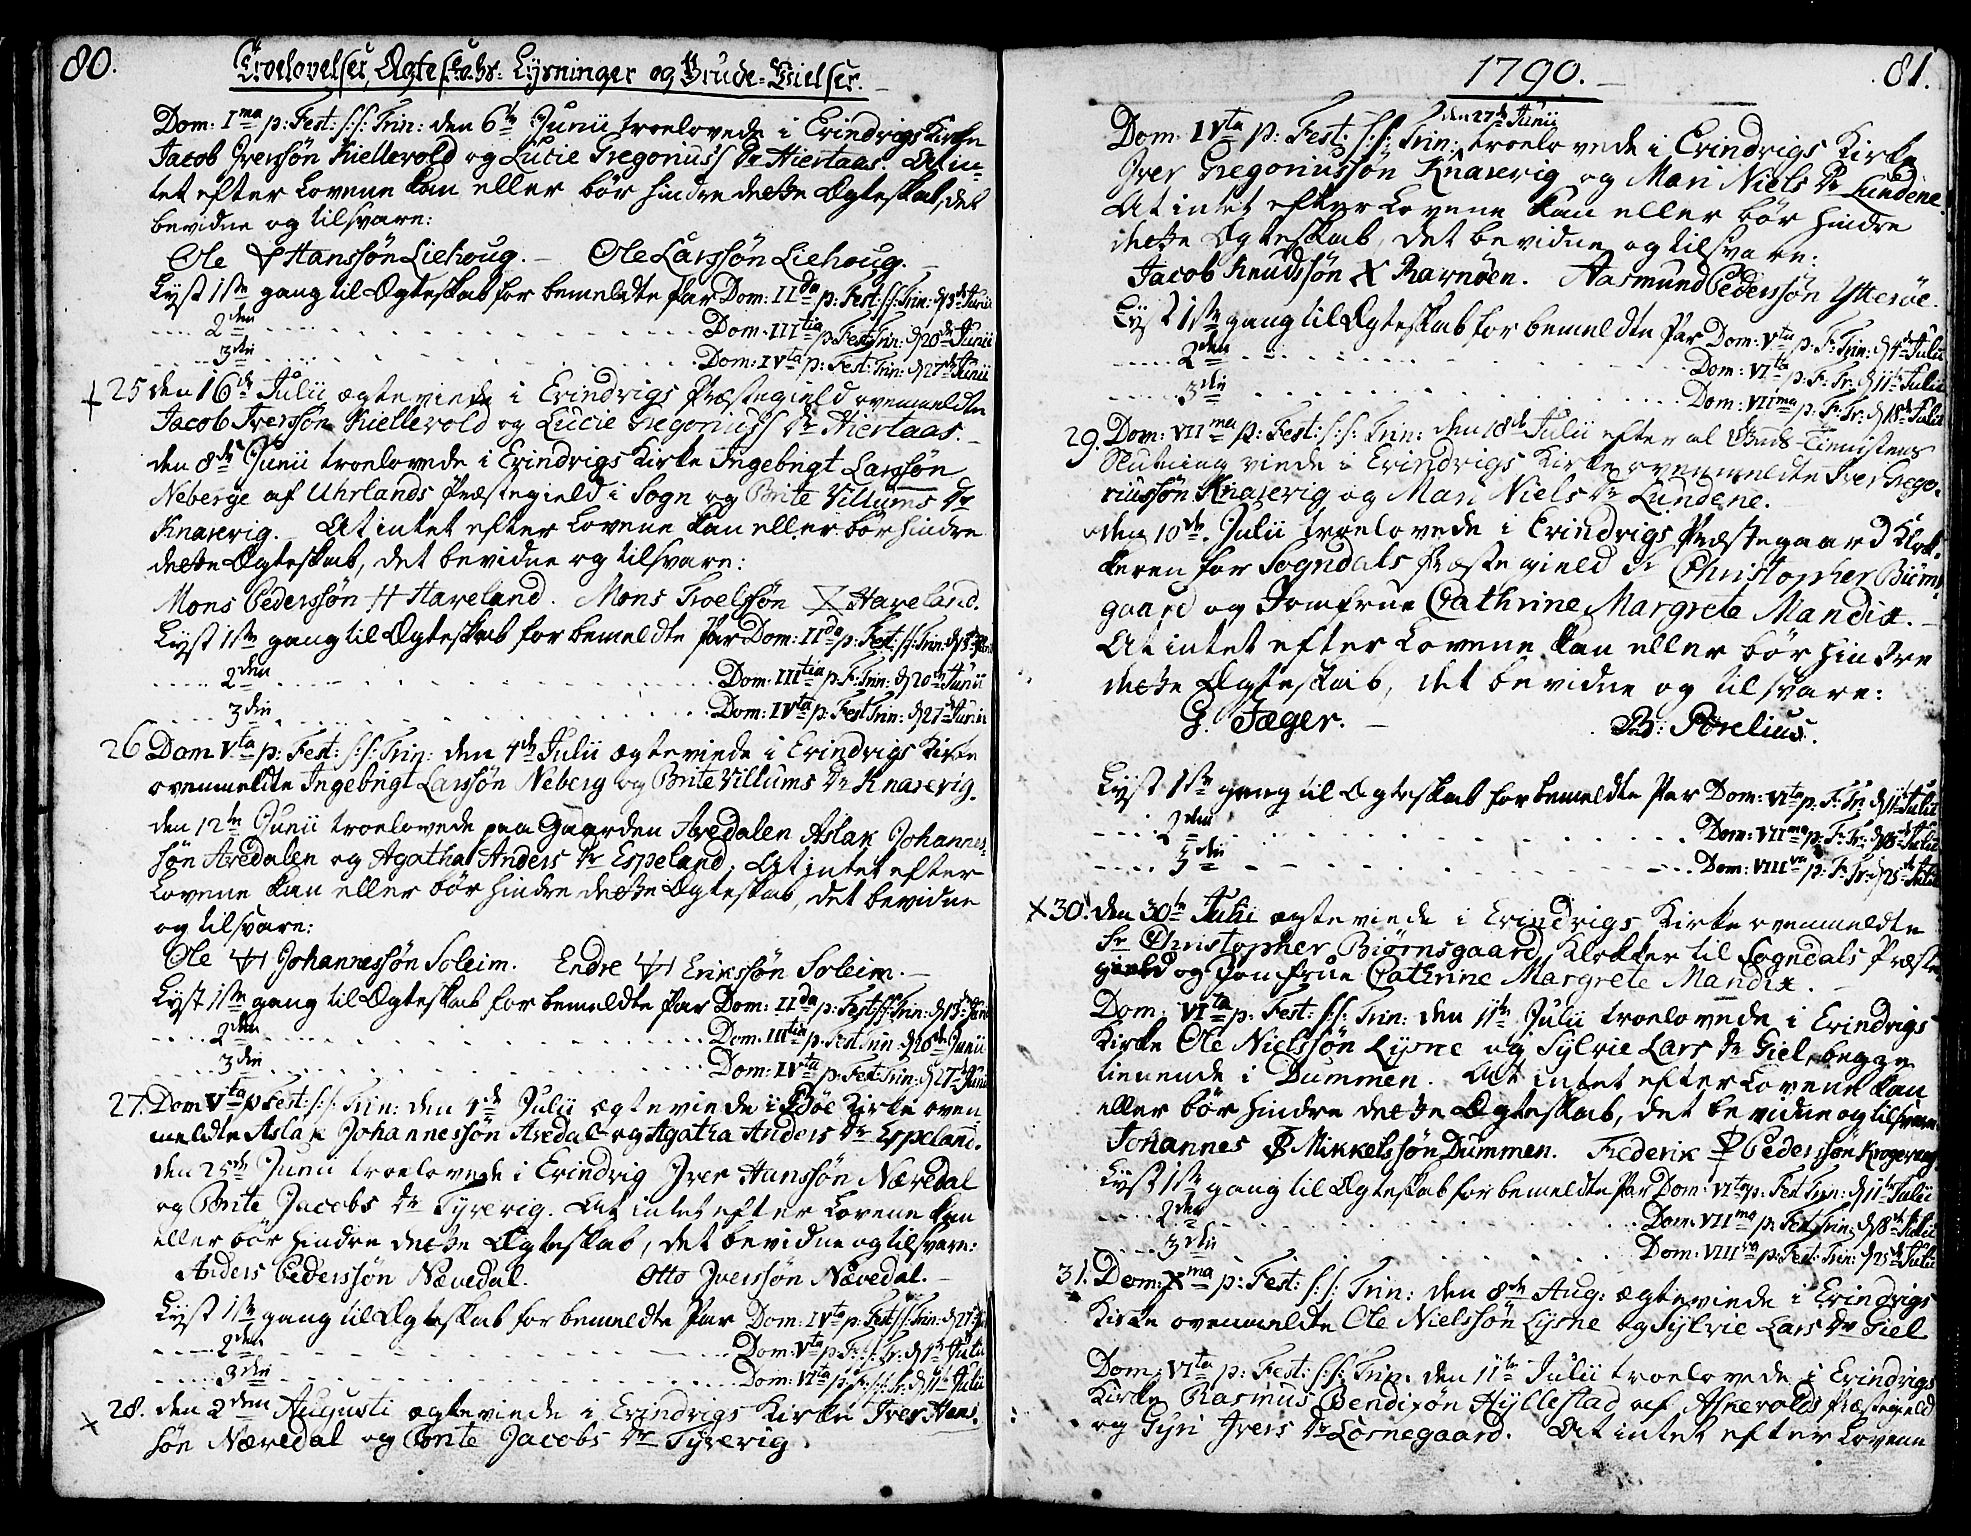 80.
Troelovelser, Ægteskabs-Lysninger og Brude-Vielser.
Dom: Ima p: Fest: S:S: Trin: den 6te Junii troelovede i Erindrigs Kirke
Jacob Iverssøn Kiellevold og Lucie Gregorius's Dr Hiertaas. At in-
tet efter Lovene kan eller bør hindre dette Ægteskab, det
bevidne og tilsvare:
Ole Hanssøn Liehoug. – Ole Larssøn Liehoug. –
Lyst 1ste gang til Ægteskab for bemeldte Par Dom: IIda p: Fest: S:S: Trin: d 13de Junii
2den Dom: IIItia p: Fest: Trin: d 20de Junii
3die Dom: IVta p: Fest: Trin: d 27de Junii
25 den 16de Julii ægteviede i Erindrigs Præstegield ovenmeldte
Jacob Iverssøn Kiellevold og Lucie Gregorius's Dr Hiertaas. –
den 8de Junii troelovede i Erindrigs Kirke Ingebrigt Larssøn
Neberge af Uhrlands Præstegield i Sogn og Brite Villums Dr
Knarevig. – At intet efter Lovene kan eller bør hindre
dette Ægteskab, det bevidne og tilsvare:
Mons Pederssøn H Haveland. Mons Troelssøn X Haveland.
Lyst 1ste gang til Ægteskab for bemeldte Par Dom: IIda p: Fest: S:S: Trin: d 13de Junii
2den Dom: IIItia p: F: Trin: d 20de Junii
3die Dom: IVta p: Fest Trin: d 27de Junii
26 Dom Vta p: Fest: S:S: Trin: den 4de Julii ægteviede i Erindrigs Kirke
ovenmeldte Ingebrigt Larssøn Neberg og Brite Villums Dr Knarevig.
den 12te Junii troelovede paa Gaarden Aredalen Aslak Johannes-
søn Aredalen og Agatha Anders Dr Espeland. At intet efter
Lovene kan eller bør hindre dette Ægteskab, det bevidne
og tilsvare:
Ole Johannessøn Soleim. Endre Erikssøn Soleim. –
Lyst 1ste gang til Ægteskab for bemeldte Par Dom: IIda p: Fest S:S: Trin: d 13de Junii
2den Dom: IIItia p: Fest Trin: d 20de Junii
3die Dom: IVta p: Fest: Trin: d 27de Junii
27. Dom Vta p Fest: S:S: Trin: den 4de Julii ægteviede i Bøe Kirke oven
meldte Aslak Johannessøn Aredal og Agatha Anders Dr Espeland.
den 25de Junii troelovede i Erindrig Iver Hanssøn Nævedal
og Brite Jacobs Dr Tyrevig. At intet efter Lovene kan
eller bør hindre dette Ægteskab, det bevidne og tilsvare:
Anders Pederssøn Nævedal. Otto Iverssøn Nævedal. –
Lyst 1ste gang til Ægteskab for bemeldte Par Dom: IVta p: Fest S:S: Trin: d 27de Junii
2den Dom: Vta p: F: S:S: Tr: d 4de Julii
3die Dom: VIta p: F: S:S: Tr: d 11te Julii
28. den 2den Augusti ægteviede i Erindrigs Kirke Iver Hans-
søn Nævedal og Brite Jacobs Dr Tyrevig.
1790. –
81.
den 27de Junii
Dom: IVta p: Fest: S:S: Trin: troelovede i Erindrigs Kirke
Iver Gregoriussøn Knarevig og Mari Niels Dr Lundene.
At intet efter Lovene kan eller bør hindre
dette Ægteskab, det bevidne og tilsvare:
Jacob Knudssøn X Ravnøen. Aasmund Pederssøn Ytterøe.
Lyst 1ste gang til Ægteskab for bemeldte Par Dom: Vta p: F: Trin: d 4de Julii
2den Dom: VIta p: F: Tr: d 11te Julii
3die Dom: VIIma p: F: Tr: d 18de Julii
29. Dom: VIIma p: Fest: S:S: Trin: den 18de Julii efter al Guds-Tienistens
Slutning viede i Erindrigs Kirke ovenmeldte Iver Grego-
riussøn Knarevig og Mari Niels Dr Lundene.
den 10de Julii troelovede i Erindrigs Præstegaard Klok-
keren for Sogndals Præstegield Sr Christopher Biørns-
gaard og Jomfrue Cathrine Margrete Mandix. –
At intet efter Lovene kan eller bør hindre
dette Ægteskab, det bevidne og tilsvare:
G. Jæger. – B: Porelius.
Lyst 1ste gang til Ægteskab for bemeldte Par Dom: VIta p: F: Tr: d 11te Julii
2den Dom: VIIma p: F: Tr: d 18de Julii
3die Dom: VIIIva p: F: Tr: d 25de Julii
X 30. den 30te Julii ægteviede i Erindrigs Kirke ovenmeldte
Sr Christopher Biørnsgaard, Klokker til Sogndals Præste-
gield og Jomfrue Cathrine Margrete Mandix. –
Dom: VIta p: Fest: S:S: Trin: den 11te Julii troelovede i Erindrigs
Kirke Ole Nielssøn Lysne og Sylvie Lars Dr Giel, begge
tienende i Dummen. At intet efter Lovene kan
eller bør hindre dette Ægteskab, det bevidne og tilsvare
Johannes Mikkelssøn Dummen. Frederik Pederssøn Krogevaag
Lyst 1ste gang til Ægteskab for bemeldte Par Dom: VIta p: Fest Trin: d 11te Julii
2den Dom: VIIma p: Fest Trin: d 18de Julii
3die Dom: VIIIva p: Fest: Trin: d 25de Julii
31. Dom: Xma p: Fest: S:S: Trin: den 8de Aug: ægteviede i Erindrigs
Kirke ovenmeldte Ole Nielssøn Lysne og Sylvie Lars Dr Giel
Dom: VIta p: Fest: S:S: Trin: den 11te Julii troelovede i Erindrigs
Kirke Rasmus Bendixøn Hyllestad af Askevolds Præstegield
og Gyri Ivers Dr Lørnegaard. At intet efter Lovene